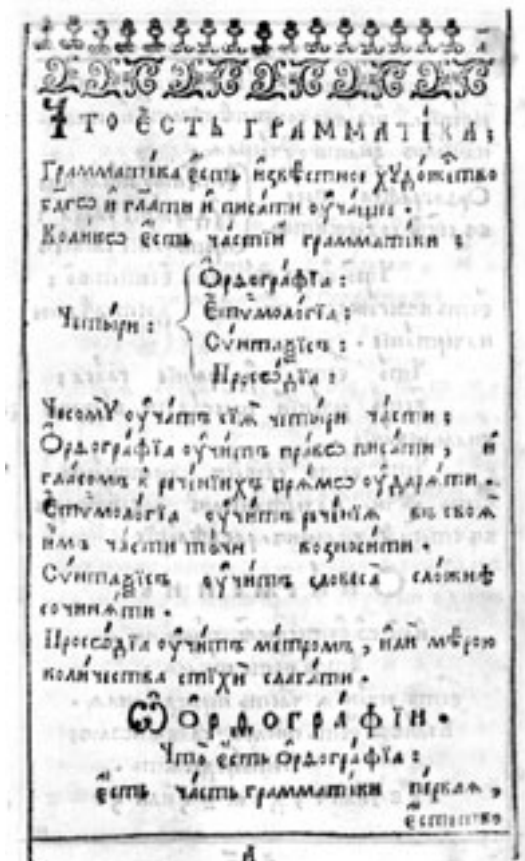 Что̀ є҆́сть грамма́тїка;
Грамма́тїка є҆́сть и҆звѣ́стное хꙋдо́жество
бл҃гѡ и҆ гл҃ати и҆ писа́ти ᲂу҆ча́щее.
Коли́кѡ є҆́сть ча́стїй грамма́тїки;
Четы́ри:
Ѻ҆рѳогра́фїа:
Є҆тѷмоло́гїа:
Сѵ́нтаѯїсъ:
Просѡ́дїа:
Чесомꙋ̀ ᲂу҆ча́тъ сїѧ̑ четы́ри ча̑сти;
Ѻ҆рѳогра́фїа ᲂу҆чи́тъ пра́вѡ писа́ти, и҆
гла́сомъ в̾ рече́нїихъ прѧ́мѡ ᲂу҆дарѧ́ти.
Є҆тѷмоло́гїа ᲂу҆чи́тъ рече́нїѧ въ своѧ̑
и҆̀мъ ча̑сти то́чнѣ возноси́ти.
Сѵ́нтаѯїсъ ᲂу҆чи́тъ словеса̀ сло́жнѣ
сочинѧ́ти.
Просѡ́дїа ᲂу҆чи́тъ ме́тромъ, и҆лѝ мѣ́рою
коли́чества стїхѝ слага́ти.
Ѽ Ѻ҆рѳогра́фїи.
Что̀ є҆́сть ѻ҆рѳогра́фїа;
Є҆́сть ча́сть грамма́тїки пе́рваѧ,
є҆стество